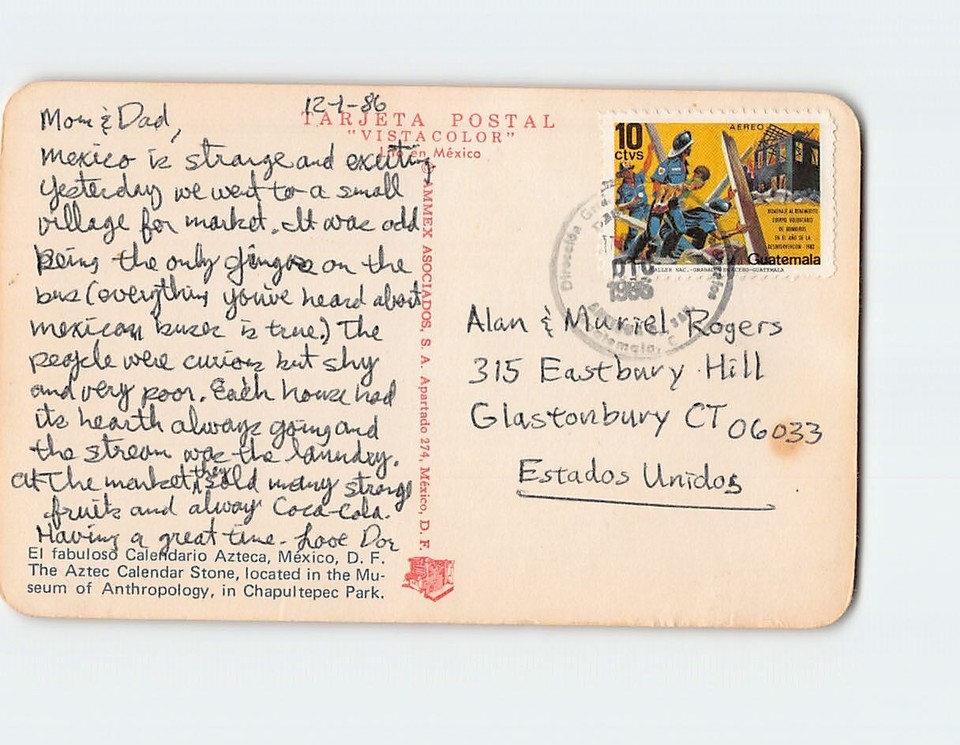 12-1-86
Mom & Dad,
Mexico is strange and exciting
Yesterday we went to a small
village for market. It was odd
being the only gringos on the
bus (everything you've heard about
mexican buses is true.) The
people were curious but shy
and very poor. Each house had
its hearth always going and
the stream was the laundry.
At the market, they sold many strange
fruits and always Coca-Cola.
Having a great time. Love Don
El fabuloso Calendario Azteca, México, D. F.
The Aztec Calendar Stone, located in the Mu-
seum of Anthropology, in Chapultepec Park.
TARJETA POSTAL
"VISTACOLOR"
en México
AMMEX ASOCIADOS, S. A. Apartado 274, México, D. F.
10
ctvs
AEREO
HOMENAJE AL BENEMERITO
CUERPO VOLUNTARIO
DE BOMBEROS
EN EL AÑO DE LA
1982
Guatemala
TALLER NAC. GRABADOS EN ACERO-GUATEMALA
Dirección
1986
Alan & Muriel Rogers
315 Eastbury Hill
Glastonbury CT 06033
Estados Unidos